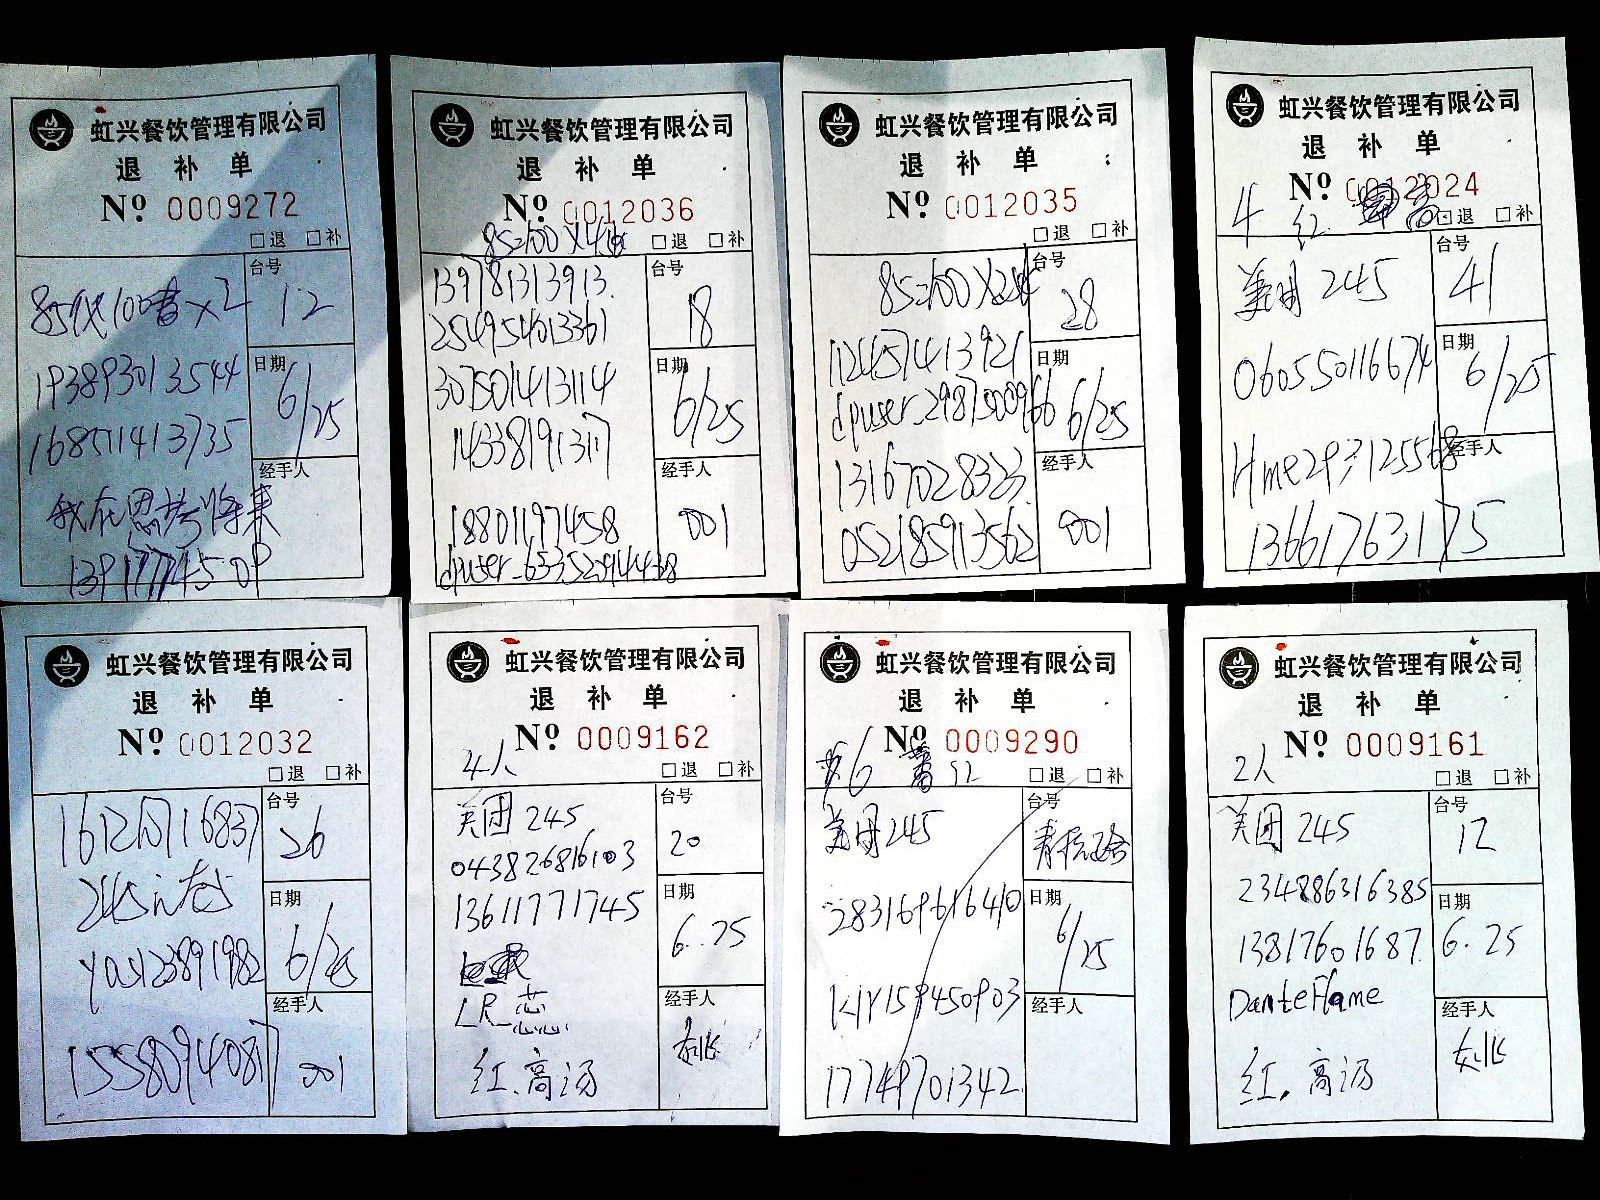 虹兴餐饮管理有限公司
退 补 单
Nº 0009272
□退 □补
台号
85代100 ×2
12
193893013544
日期
6/25
168511413735
经手人
我在思考将来
虹兴餐饮管理有限公司
退 补 单
Nº 0012036
85=100 ×4
□退 □补
台号
139781313913
18
254954013361
日期
307501413114
6/25
经手人
18801197458
001
虹兴餐饮管理有限公司
退 补 单
Nº 0012035
□退 □补
台号
85=100
28
112457413921
日期
dpuser_2987500966
6/25
经手人
13167028323
052185913562
001
虹兴餐饮管理有限公司
退 补 单
Nº 0012024
4 红
□退 □补
台号
美团 245
41
日期
060550116674
6/25
经手人
13661763175
虹兴餐饮管理有限公司
退 补 单
Nº 0012032
□退 □补
台号
26
245
日期
yas123891982
6/25
经手人
15580940817
001
虹兴餐饮管理有限公司
退 补 单
Nº 0009162
4人
□退 □补
台号
美团 245
20
043826816103
日期
13611771745
6.25
经手人
LR_芯
红.高汤
虹兴餐饮管理有限公司
退 补 单
Nº 0009290
6
□退 □补
台号
美团245
283169616410
日期
6/25
经手人
17749701342
虹兴餐饮管理有限公司
退 补 单
Nº 0009161
2人
□退 □补
台号
美团 245
12
234886316385
日期
13817601687
6.25
DanteFlame
经手人
红.高汤